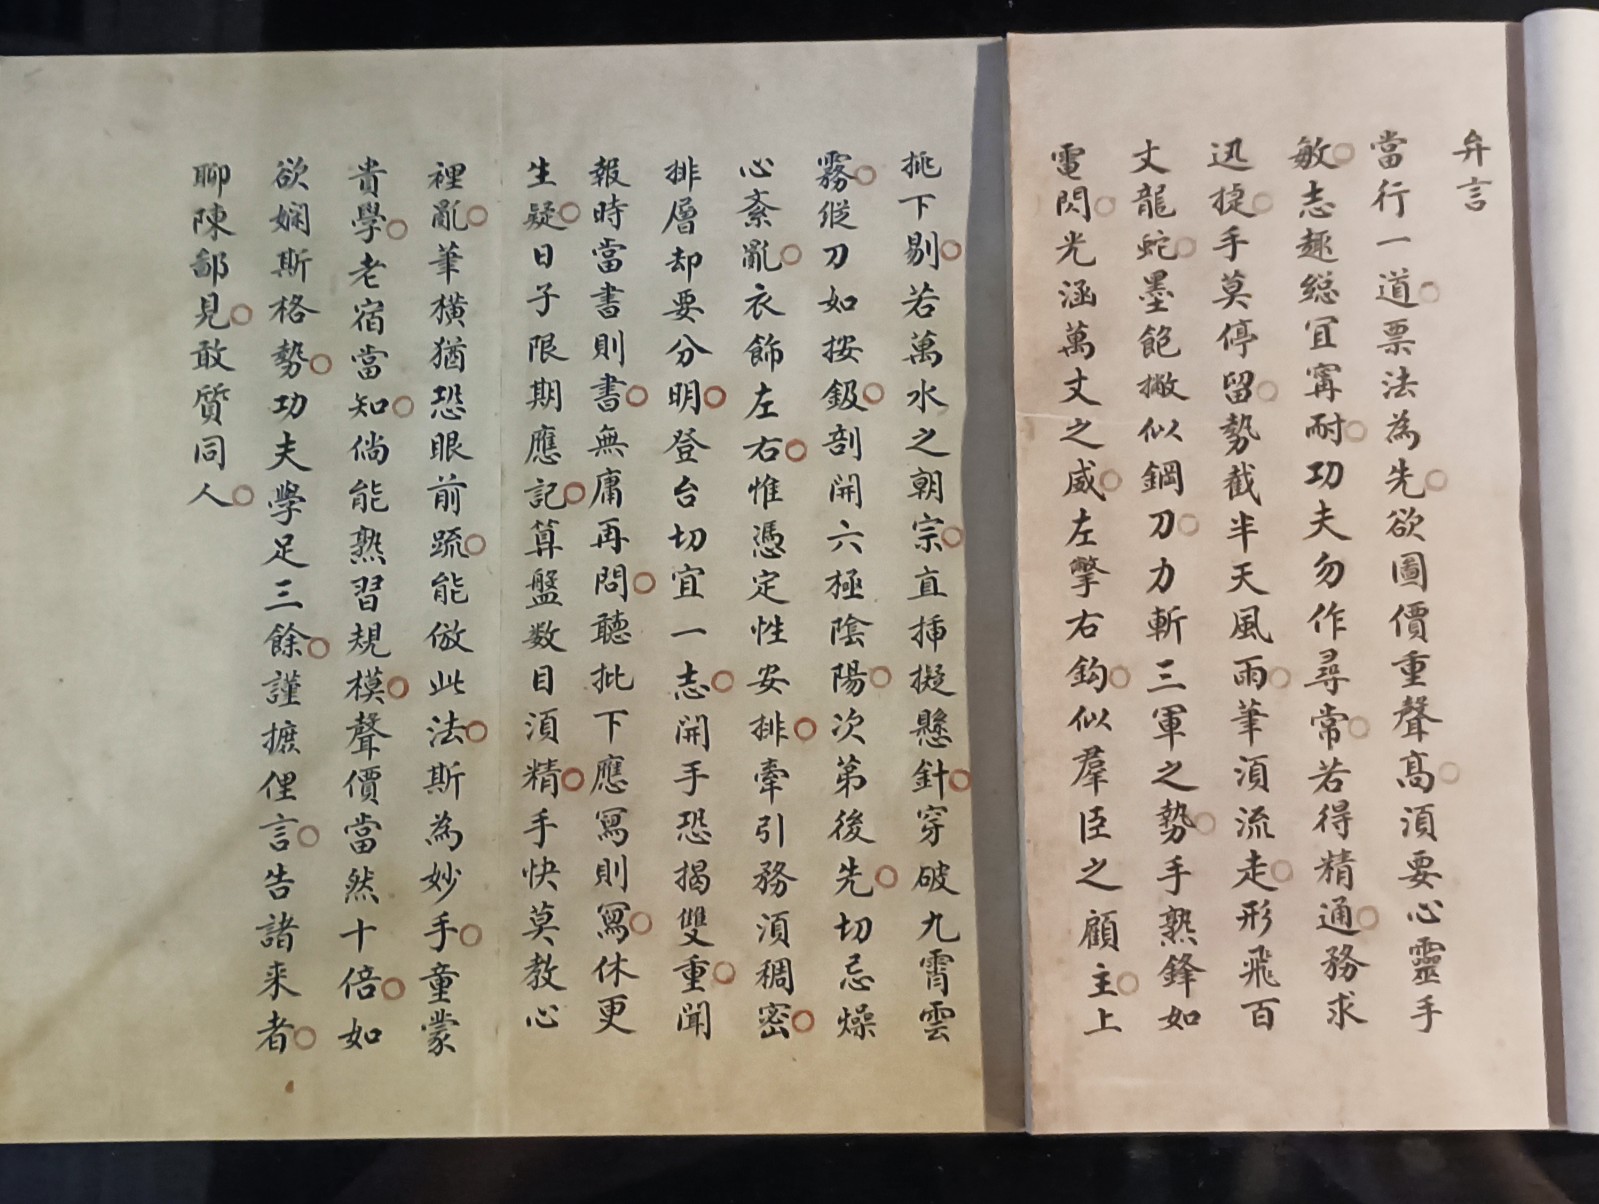 弁言
當行一道票法為先欲圖價重聲高湏要心靈手
敏志趣総宜寗耐功夫勿作尋常若得精通務求
迅捷手莫停留勢截半天風雨筆湏流走形飛百
丈龍蛇墨飽撇似鋼刀力斬三軍之勢手熟鋒如
電閃光涵萬丈之威左擎右鈎似羣臣之顧主上
挑下剔若萬水之朝宗直揷擬懸針穿破九霄雲
霧縱刀如按鈒剖開六極陰陽次第後先切忌燥
心紊亂衣飾左右惟憑定性安排牽引務湏稠密
排層却要分明登台切宜一志開手恐揭雙重聞
報時當書則書無庸再問聽批下應寫則寫休更
生疑日子限期應記算盤数目湏精手快莫教心
裡亂筆橫猶恐眼前䟽能倣此法斯為妙手童蒙
貴學老宿當知倘能熟習規模聲價當然十倍如
欲嫻斯格勢功夫學足三餘謹摭俚言告諸来者
聊陳鄙見敢質同人